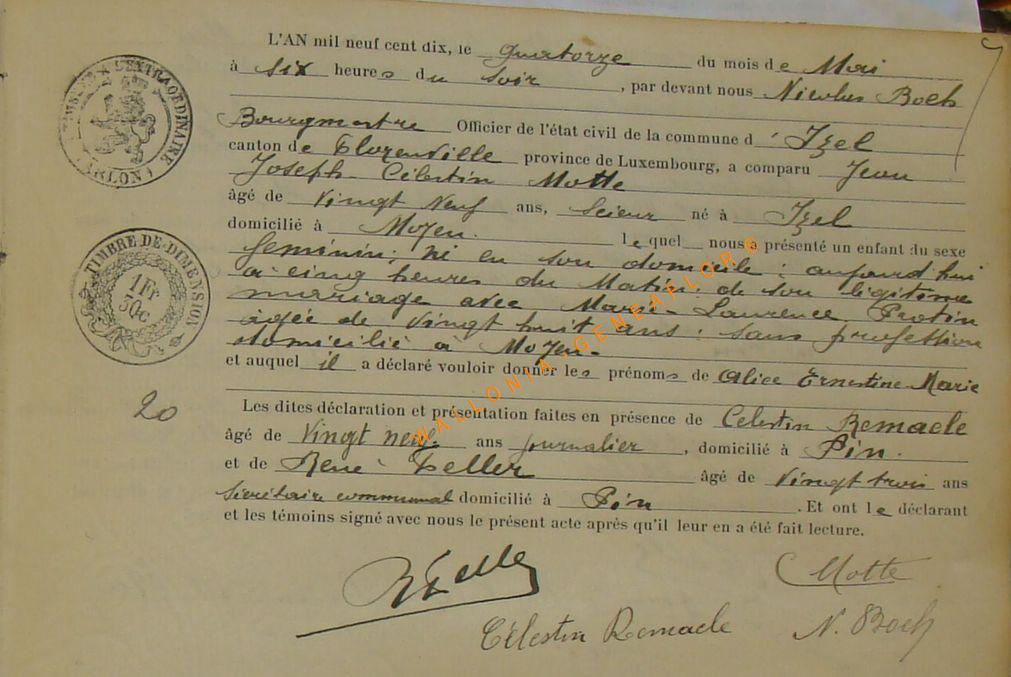 TIMBRE A L'EXTRAORDINAIRE
(ARLON)
TIMBRE DE DIMENSION
1Fr
30c
20
L'AN mil neuf cent dix, le quatorze du mois de Mai
à six heures du soir, par devant nous Nicolas Boch
Bourgmestre Officier de l'état civil de la commune d'Izel
canton de Florenville province de Luxembourg, a comparu Jean
Joseph Célestin Motte
âgé de vingt neuf ans, Scieur né à Izel
domicilié à Moyen. lequel nous a présenté un enfant du sexe
féminin; né en son domicile: aujourd'hui
à cinq heures du Matin: de son légitime
mariage avec Marie-Laurence Protin
agée de vingt huit ans: sans profession
domicilié à Moyen.
et auquel il a déclaré vouloir donner les prénoms de Alice Ernestine Marie
Les dites déclaration et présentation faites en présence de Célestin Remacle
âgé de vingt neuf ans journalier, domicilié à Pin.
et de René Deller âgé de vingt trois ans
Secrétaire communal domicilié à Pin. Et ont le déclarant
et les témoins signé avec nous le présent acte après qu'il leur en a été fait lecture.
Motte
Célestin Remacle N. Boch
WALLONIA-GENEAFLOR